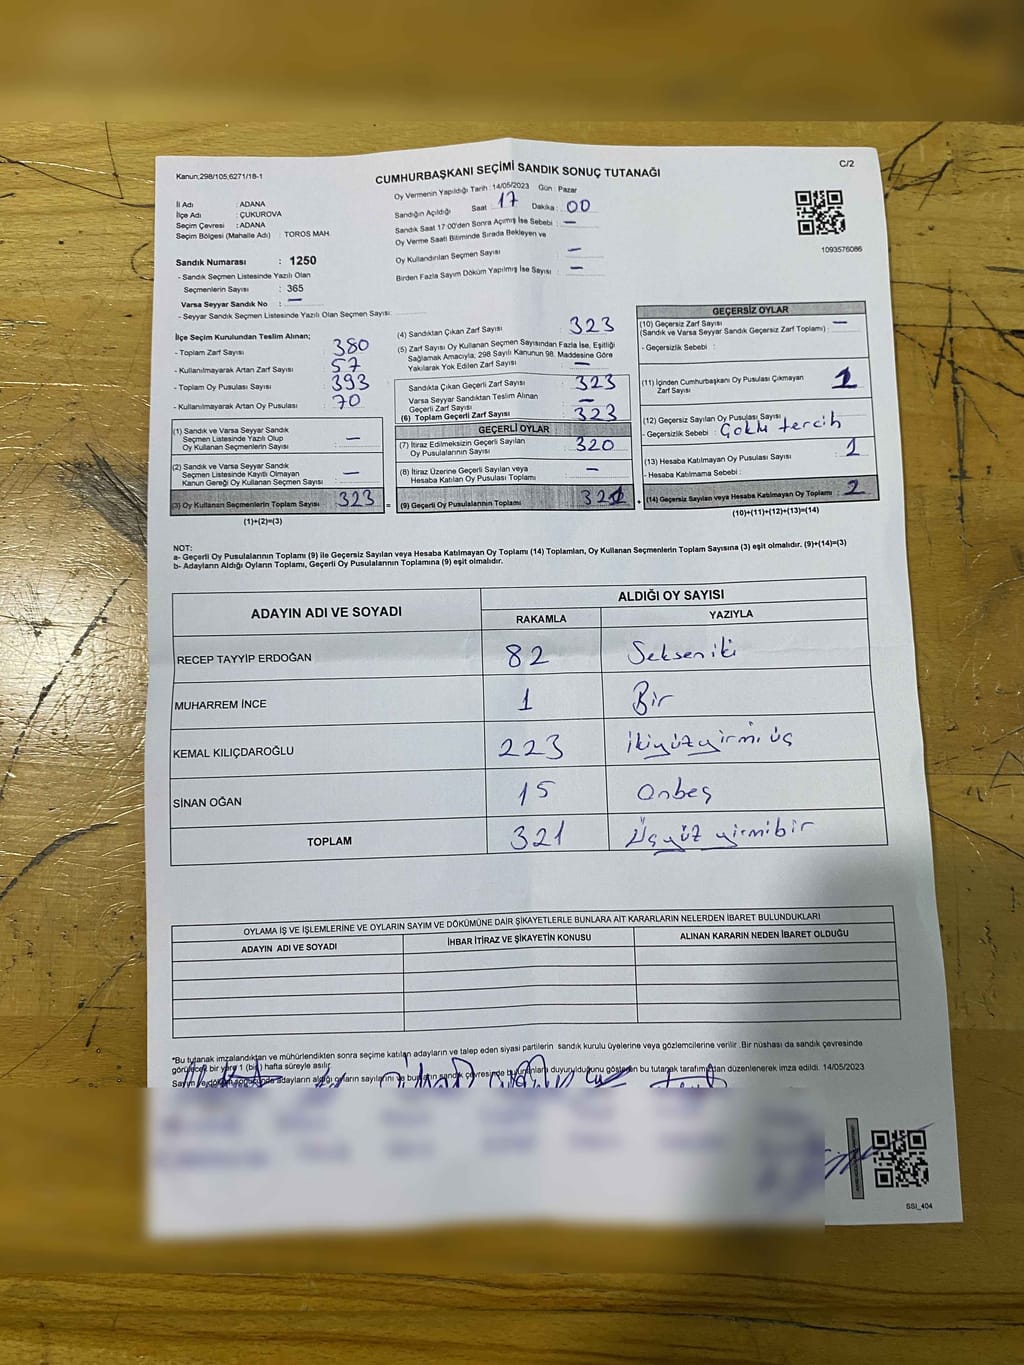 Kanun;298/105;6271/18-1
CUMHURBAŞKANI SEÇİMİ SANDIK SONUÇ TUTANAĞI
C/2
İl Adı : ADANA
İlçe Adı : ÇUKUROVA
Seçim Çevresi : ADANA
Seçim Bölgesi (Mahalle Adı) : TOROS MAH.
Oy Vermenin Yapıldığı Tarih : 14/05/2023 Gün : Pazar
Sandığın Açıldığı Saat : 17 Dakika : 00
Sandık Saat 17:00'den Sonra Açımış İse Sebebi : —
Oy Verme Saati Bitiminde Sırada Bekleyen ve
Oy Kullandırılan Seçmen Sayısı —
Birden Fazla Sayım Döküm Yapılmış İse Sayısı : —
1093576086
Sandık Numarası : 1250
- Sandık Seçmen Listesinde Yazılı Olan
Seçmenlerin Sayısı : 365
Varsa Seyyar Sandık No : —
- Seyyar Sandık Seçmen Listesinde Yazılı Olan Seçmen Sayısı:
İlçe Seçim Kurulundan Teslim Alınan;
- Toplam Zarf Sayısı : 380
- Kullanılmayarak Artan Zarf Sayısı : 57
- Toplam Oy Pusulası Sayısı : 393
- Kullanılmayarak Artan Oy Pusulası : 70
(1) Sandık ve Varsa Seyyar Sandık
Seçmen Listesinde Yazılı Olup
Oy Kullanan Seçmenlerin Sayısı : —
(2) Sandık ve Varsa Seyyar Sandık
Seçmen Listesinde Kayıtlı Olmayan
Kanun Gereği Oy Kullanan Seçmen Sayısı : —
(3) Oy Kullanan Seçmenlerin Toplam Sayısı : 323
(1)+(2)=(3)
(4) Sandıktan Çıkan Zarf Sayısı : 323
(5) Zarf Sayısı Oy Kullanan Seçmen Sayısından Fazla İse, Eşitliği
Sağlamak Amacıyla, 298 Sayılı Kanunun 98. Maddesine Göre
Yakılarak Yok Edilen Zarf Sayısı : —
Sandıkta Çıkan Geçerli Zarf Sayısı : 323
Varsa Seyyar Sandıktan Teslim Alınan
Geçerli Zarf Sayısı : —
(6) Toplam Geçerli Zarf Sayısı : 323
GEÇERLİ OYLAR
(7) İtiraz Edilmeksizin Geçerli Sayılan
Oy Pusulasının Sayısı : 320
(8) İtiraz Üzerine Geçerli Sayılan veya
Hesaba Katılan Oy Pusulası Toplamı : —
(9) Geçerli Oy Pusulalarının Toplamı : 321
GEÇERSİZ OYLAR
(10) Geçersiz Zarf Sayısı : —
(Sandık ve Varsa Seyyar Sandık Geçersiz Zarf Toplamı)
- Geçersizlik Sebebi :
(11) İçinden Cumhurbaşkanı Oy Pusulası Çıkmayan
Zarf Sayısı : 1
(12) Geçersiz Sayılan Oy Pusulası Sayısı
- Geçersizlik Sebebi : tercih
(13) Hesaba Katılmayan Oy Pusulası Sayısı : 1
- Hesaba Katılmama Sebebi :
(14) Geçersiz Sayılan veya Hesaba Katılmayan Oy Toplamı : 2
(10)+(11)+(12)+(13)=(14)
NOT:
a- Geçerli Oy Pusulalarının Toplamı (9) ile Geçersiz Sayılan veya Hesaba Katılmayan Oy Toplamı (14) Toplamları, Oy Kullanan Seçmenlerin Toplam Sayısına (3) eşit olmalıdır. (9)+(14)=(3)
b- Adayların Aldığı Oyların Toplamı, Geçerli Oy Pusulalarının Toplamına (9) eşit olmalıdır.
ADAYIN ADI VE SOYADI
ALDIĞI OY SAYISI
RAKAMLA YAZIYLA
RECEP TAYYİP ERDOĞAN 82 Sekseniki
MUHARREM İNCE 1 Bir
KEMAL KILIÇDAROĞLU 223 İkiyüzyirmi üç
SİNAN OĞAN 15 Onbeş
TOPLAM 321 Üçyüz yirmibir
OYLAMA İŞ VE İŞLEMLERİNE VE OYLARIN SAYIM VE DÖKÜMÜNE DAİR ŞİKAYETLERLE BUNLARA AİT KARARLARIN NELERDEN İBARET BULUNDUKLARI
ADAYIN ADI VE SOYADI İHBAR İTİRAZ VE ŞİKAYETİN KONUSU ALINAN KARARIN NEDEN İBARET OLDUĞU
*Bu tutanak imzalandıktan ve mühürlendikten sonra seçime katılan adayların ve talep eden siyasi partilerin sandık kurulu üyelerine veya gözlemcilerine verilir .Bir nüshası da sandık çevresinde
görülecek bir yere 1 (bir) hafta süreyle asılır.
Sayım ve döküm sonucunda adayların aldığı oyların sayılarını ve bunların sandık çevresinde bulunanlara duyurulduğunu gösteren bu tutanak tarafımızdan düzenlenerek imza edildi. 14/05/2023
SSI_404